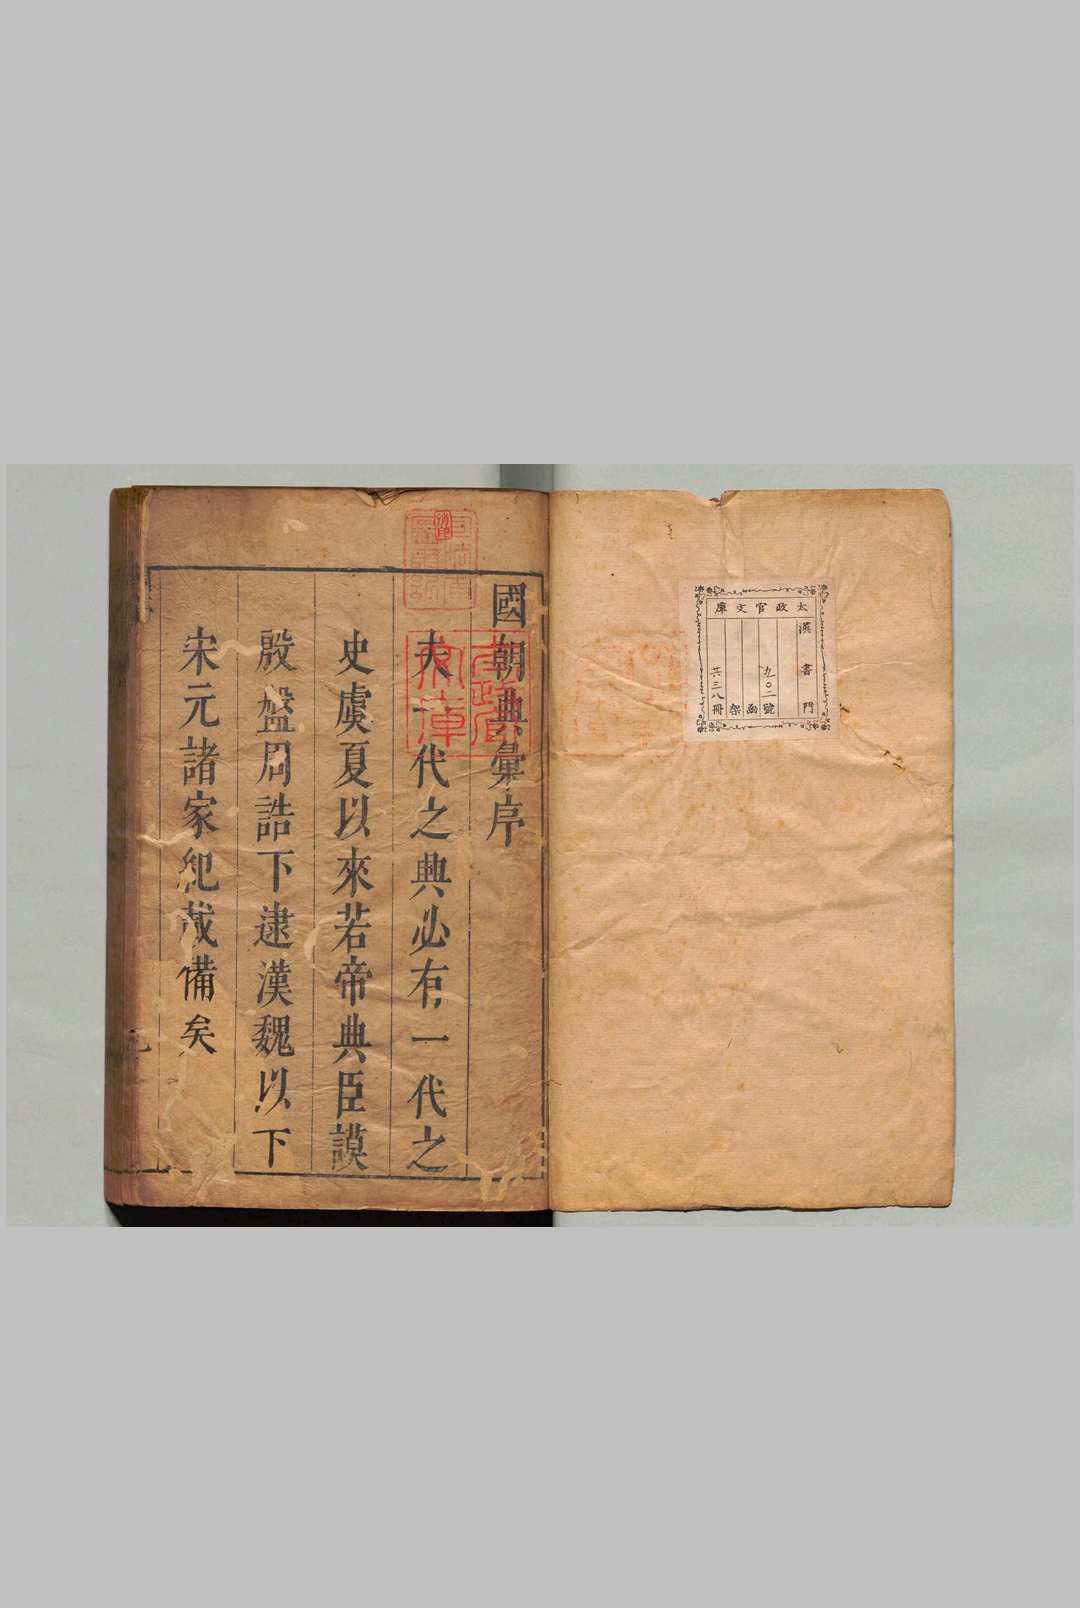 太政官文庫
漢書門
九〇二號
函
架
共三八冊
國朝典彙序
夫一代之典必有一代之
史虞夏以來若帝典臣謨
殷盤周誥下逮漢魏以下
宋元諸家紀載備矣
太政官文庫